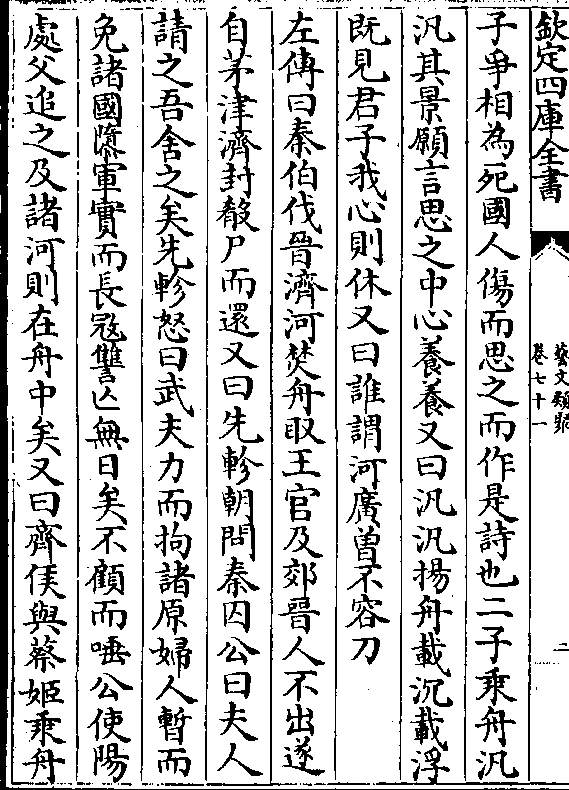 欽定四庫全書
藝文類聚
卷七十一
二
子爭相為死國人傷而思之而作是詩也二子乘舟汎
汎其景願言思之中心養養又曰汎汎揚舟載沉載浮
既見君子我心則休又曰誰謂河廣曾不容刀
左傳曰秦伯伐晉濟河焚舟取王官及郊晉人不出遂
自茅津濟封殽尸而還又曰先軫朝問秦囚公曰夫人
請之吾舍之矣先軫怒曰武夫力而拘諸原婦人暫而
免諸國隳軍實而長寇讐亡無日矣不顧而唾公使陽
處父追之及諸河則在舟中矣又曰齊侯與蔡姬乘舟